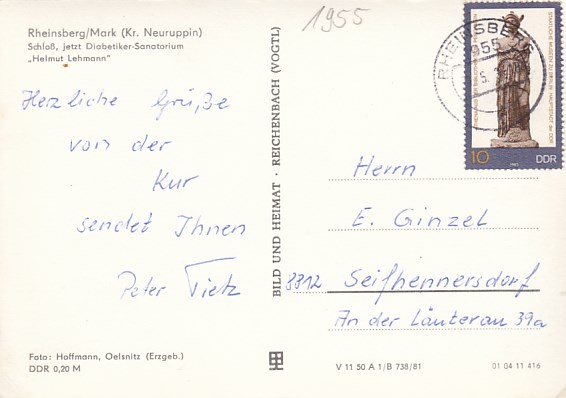 Rheinsberg/Mark (Kr. Neuruppin)
Schloß, jetzt Diabetiker-Sanatorium
„Helmut Lehmann"
1955
Herzliche Grüße
von der
Kur
sendet Ihnen
Peter Tietz
BILD UND HEIMAT · REICHENBACH (VOGTL)
RHEINSBERG
1955
STAATLICHE MUSEEN ZU BERLIN · HAUPTSTADT der DDR
10
DDR
Herrn
E. Ginzel
8812 Seifhennersdorf
An der Läuterau 39a
Foto: Hoffmann, Oelsnitz (Erzgeb.)
DDR 0,20 M
V 11 50 A 1/B 738/81
01 04 11 416